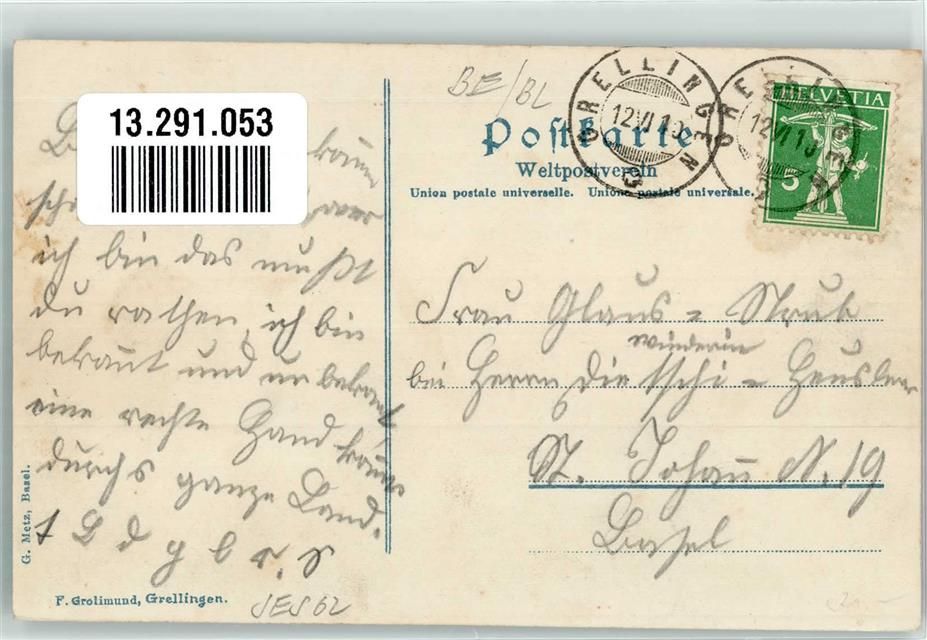 13.291.053
BE/BL
GRELLINGEN
12 VI 1
GRELLINGEN
12 VI 1
HELVETIA
5
Postkarte
Weltpostverein
Union postale universelle. Unione postale universale.
ich bin das mußt
du rathen, ich bin
bekannt und unbekannt
eine rechte Hand
durchs ganze Land.
Frau Glaus = Strub
bei Herrn Dietschi = Heusler
St. Johann N. 19
Basel
G. Metz, Basel.
F. Grolimund, Grellingen.